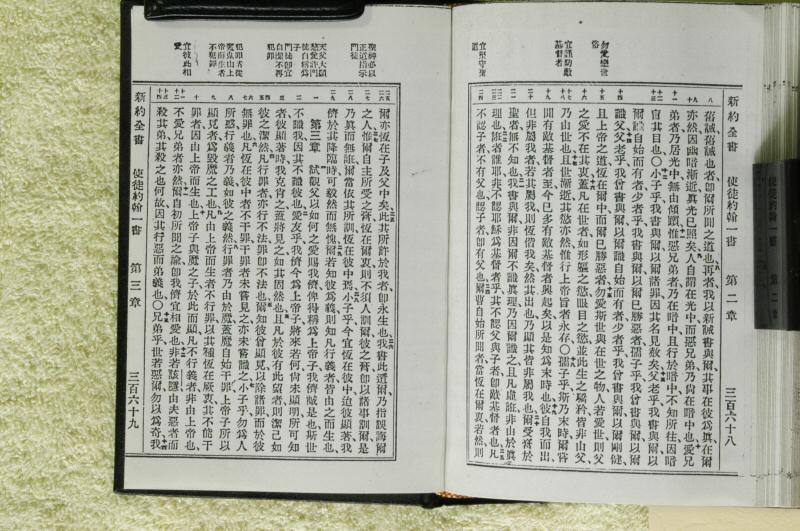 新約全書 使徒約翰一書 第二章 三百六十八
勿愛戀世俗
宜謹防敵基督者
宜堅守聖道
舊誡、舊誡也者、即爾所聞之道也、再者、我以新誡書與爾、其事在彼爲眞、在爾
亦然、因幽暗漸逝、眞光已照矣、人自謂在光中、而惡兄弟、乃尚在暗中也、愛兄
弟者、乃居光中、無由傾躓、惟惡兄弟者、乃在暗中、且行於暗中、不知所往、因暗
盲其目也、〇小子乎、我書與爾、以爾諸罪因其名見赦矣、父老乎、我書與爾、以
爾識自始而有者、少者乎、我書與爾、以爾已勝惡者、孺子乎、我曾書與爾、以爾
識父、父老乎、我曾書與爾、以爾識自始而有者、少者乎、我曾書與爾、以爾剛健、
且上帝之道恆在爾中、而爾已勝惡者、勿愛斯世與在世之物、人若愛世、則父
之愛不在其衷、蓋凡在世者、如形軀之慾、眼目之慾、並此生之驕矜、皆非由父、
乃由世也、且世漸逝、其慾亦然、惟行上帝旨者、永存、〇孺子乎、斯乃末時、爾嘗
聞有敵基督者至、今已多有敵基督者興起矣、以是知爲末時也、彼自我而出、
但非屬我者、若其屬我、則恆偕我矣、然其出也、乃顯其皆非屬我也、爾受膏於
聖者、無不知也、我書與爾、非因爾不識眞理、乃因爾識之、且凡虛誑非由於眞
理也、誰爲誑者、非不認耶穌爲基督者乎、其不認父與子者、卽敵基督者也、凡
不認子者、不有父也、認子者、卽有父也、爾曹自始所聞者、當恆在爾衷、若然、則
新約全書 使徒約翰一書 第三章 三百六十九
聖神必以正道指示門徒
天父大顯慈愛許門徒自稱爲子
門徒卽宜自潔不再犯罪
犯罪者從魔鬼由上帝而生者不犯罪
宜彼此相愛
爾亦恆在子及父中矣、此其所許於我者、卽永生也、我書此、乃指誤誨爾
之人、惟爾自主所受之膏、恆在爾衷、則不須人訓爾、彼之膏、卽以諸事訓爾、是
乃眞而無誑、爾當依其所訓、恆在彼中焉、小子乎、今宜恆在彼中、迨彼顯著、我
儕於其降臨時、可毅然而無愧、爾若知彼爲義、則知凡行義者、皆由之而生也、
第三章 試觀父以如何之愛賜我儕、俾得稱爲上帝子、我儕誠是也、斯世
不識我、因其不識彼也、愛友乎、我儕今爲上帝子、將來若何、尚未顯明、所可知
者、彼顯著時、我克肖之、蓋將見之如其固然也、且凡於彼有此望者、則潔己如
彼之潔、然凡行罪者、亦行不法、罪卽不法也、爾知彼曾顯見以除諸罪、而於彼
無罪也、凡恆在彼中者不干罪、干罪者未嘗見之、亦未嘗識之、小子乎、勿爲人
所惑、行義者乃義、如彼之義然、行罪者乃由於魔、蓋魔自始干罪、上帝子所以
顯見者、爲毀魔之工也、凡由上帝而生者不行罪、以其種恆在厥衷、其不能干
罪者、因由上帝而生也、上帝子與魔之子、於此而顯、凡不行義者非由上帝也、
不愛兄弟者亦然、爾自初所聞之諭、卽我儕宜相愛也、非若該隱由夫惡者而
殺其弟、其殺之也何故、因其行惡而弟義也、〇兄弟乎、世若惡爾、勿以爲奇、我